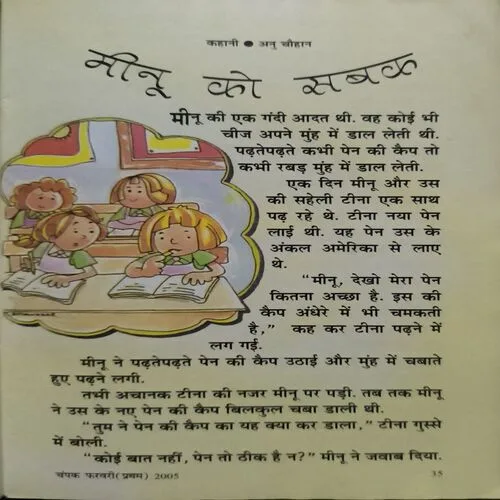 कहानी ● अनु चौहान
मीनू को सबक
मीनू की एक गंदी आदत थी. वह कोई भी
चीज अपने मुंह में डाल लेती थी.
पढ़तेपढ़ते कभी पेन की कैप तो
कभी रबड़ मुंह में डाल लेती.
एक दिन मीनू और उस
की सहेली टीना एक साथ
पढ़ रहे थे. टीना नया पेन
लाई थी. यह पेन उस के
अंकल अमेरिका से लाए
थे.
“मीनू, देखो मेरा पेन
कितना अच्छा है. इस की
कैप अंधेरे में भी चमकती
है,” कह कर टीना पढ़ने में
लग गई.
मीनू ने पढ़तेपढ़ते पेन की कैप उठाई और मुंह में चबाते
हुए पढ़ने लगी.
तभी अचानक टीना की नजर मीनू पर पड़ी. तब तक मीनू
ने उस के नए पेन की कैप बिलकुल चबा डाली थी.
“तुम ने पेन की कैप का यह क्या कर डाला,” टीना गुस्से
में बोली.
“कोई बात नहीं, पेन तो ठीक है न?” मीनू ने जवाब दिया.
चंपक फरवरी (प्रथम) 2005
35